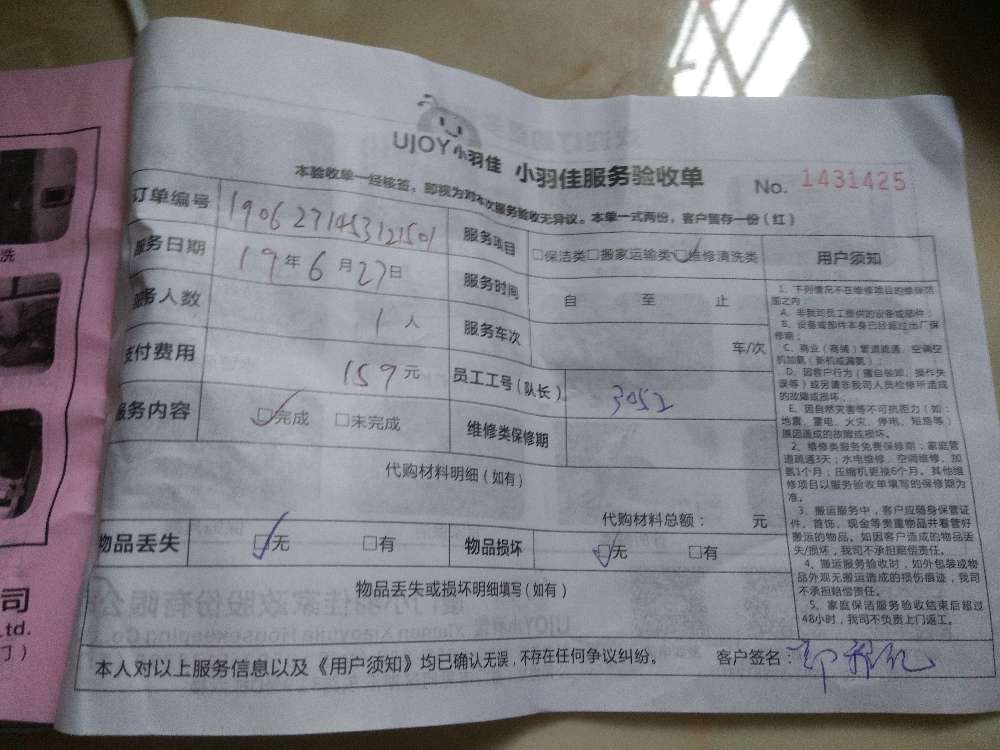 UJOY小羽佳 小羽佳服务验收单
No. 1431425
本验收单一经核签，即视为对本次服务验收无异议。本单一式两份，客户暂存一份（红）
订单编号 1906271453121501 服务项目 □保洁类□搬家运输类☑维修清洗类
服务日期 19年6月27日 服务时间 自 至 止
服务人数 1人 服务车次 车/次
支付费用 159元 员工工号（队长） 3052
服务内容 ☑完成 □未完成 维修类保修期
代购材料明细（如有）
代购材料总额： 元
物品丢失 ☑无 □有 物品损坏 ☑无 □有
物品丢失或损坏明细填写（如有）
用户须知
1、下列情况不在维修项目的维保范
围之内
A、非我司员工提供的设备或部件；
B、设备或部件本身已经超过出厂保
修期；
C、商业（商铺）管道疏通、空调空
机加氟（新机或漏氟）；
D、因客户行为（擅自装卸、操作失
误等）或另请非我司人员检修所造成
的故障或损坏。
E、因自然灾害等不可抗拒力（如：
地震、雷电、火灾、停电、短路等）
原因造成的故障或损坏。
2、维修类服务免费保修期：家庭管
道疏通3天；水电维修、空调维修、加
氟1个月；压缩机更换6个月。其他维
修项目以服务验收单填写的保修期为
准。
3、搬运服务中，客户应随身保管证
件、首饰、现金等贵重物品并看管好
搬运的物品。如因客户造成的物品丢
失/损坏，我司不承担赔偿责任。
4、搬运服务验收时，如外包装或物
品外观无搬运造成的损伤痕迹，我司
不承担赔偿责任。
5、家庭保洁服务验收结束后超过
48小时，我司不负责上门返工。
本人对以上服务信息以及《用户须知》均已确认无误，不存在任何争议纠纷。 客户签名：
洗
司
Ltd.
门）